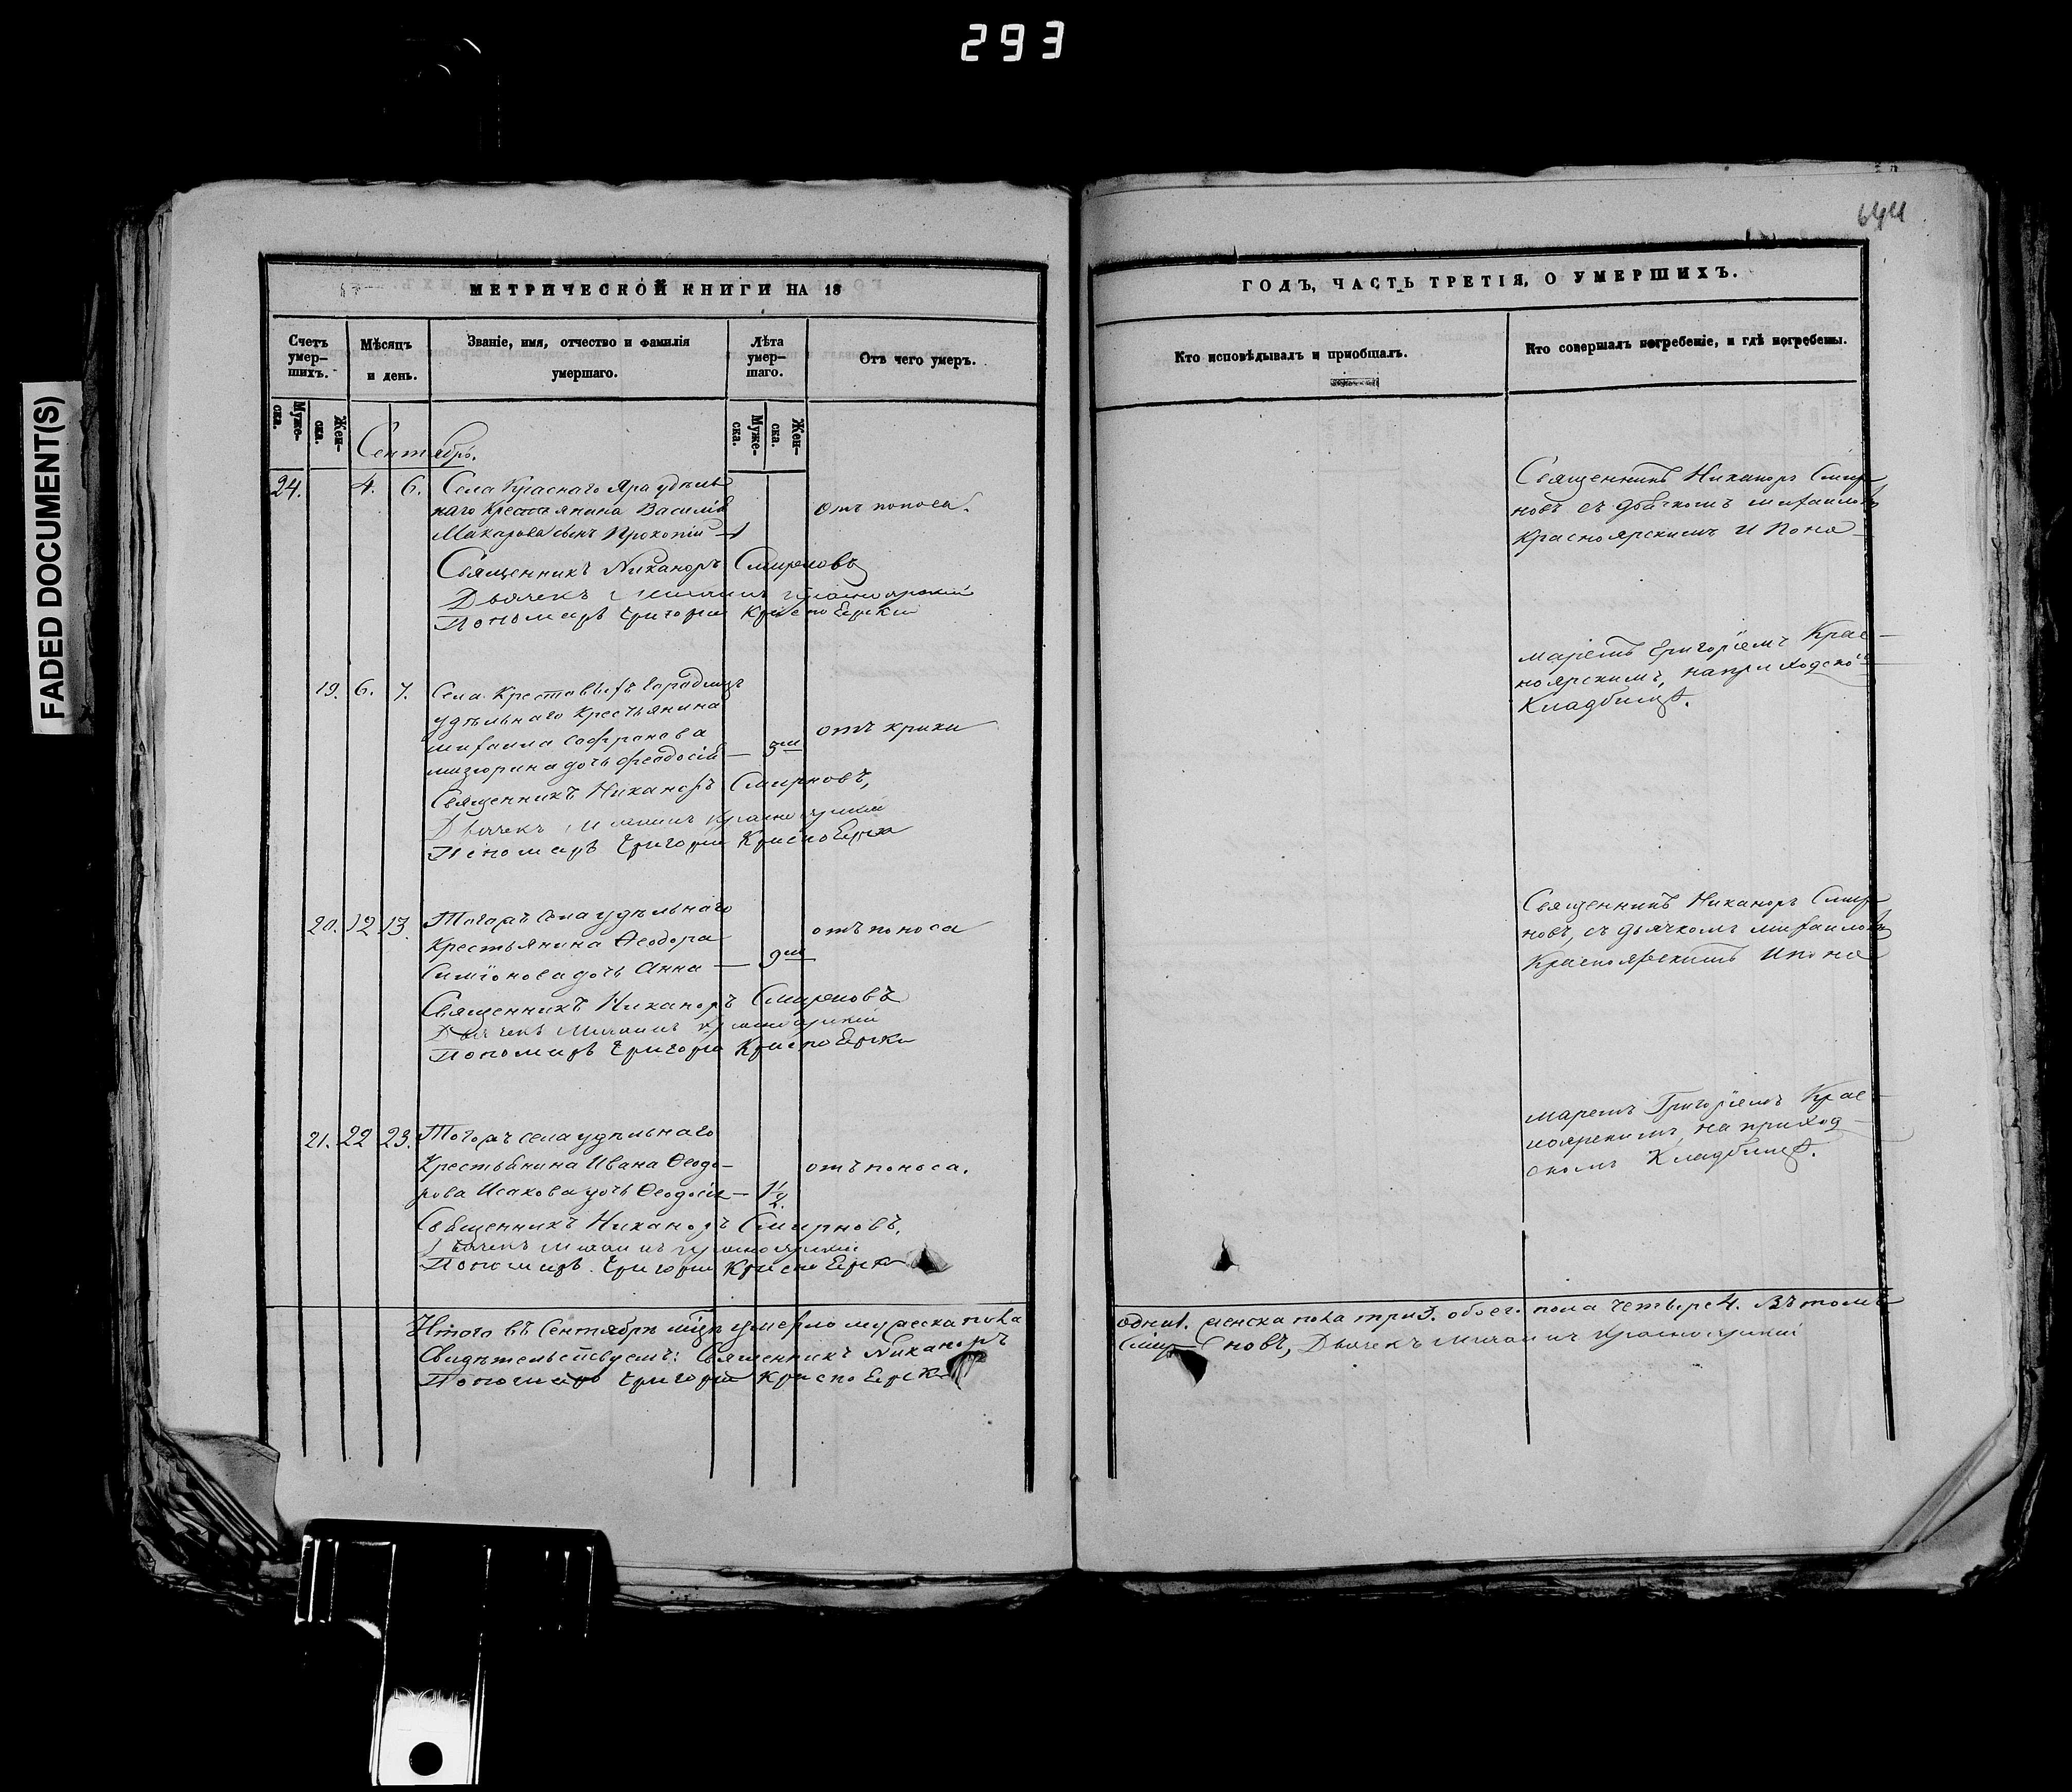 293
FADED DOCUMENT(S)
644
МЕТРИЧЕСКОЙ КНИГИ НА 18
ГОДЪ, ЧАСТЬ ТРЕТІЯ, О УМЕРШИХЪ.
Счетъ умер-шихъ.
Мѣсяцъ и день.
Званіе, имя, отчество и фамилія умершаго.
Лѣта умер-шаго.
Отъ чего умеръ.
Кто исповѣдывалъ и пріобщалъ.
Кто совершалъ погребеніе, и гдѣ погребены.
Муже-ска.
Жен-ска.
Муже-ска.
Жен-ска.
Сентябрь.
24. 4. 6. Села Краснаго Яра удѣль
наго крестьянина Василія
Макарова сынъ Прокопій — 1
отъ поноса.
Священникъ Никаноръ Смирновъ
Дьячекъ Михаилъ Красноярскій
Пономарь Григорій Красноярски
Священникъ Никаноръ Смир
новъ съ дьячкомъ Михаиломъ
Красноярскимъ и Поно-
маремъ Григоріемъ Крас-
ноярскимъ, на приходско
Кладбищѣ.
19. 6. 7. Села Крестовыхъ Городищъ
удѣльнаго Крестьянина
Михаила Софронова
Мизюрина дочь Феодосія — 3
отъ крику
Священникъ Никаноръ Смирновъ,
Дьячекъ Михаилъ Красноярскій
Пономарь Григорій Красноярск
20. 12 13. Тогожъ села удѣльнаго
Крестьянина Ѳеодора
Симіонова дочь Анна — 9
отъ поноса
Священникъ Никаноръ Смирновъ
Дьячекъ Михаилъ Красноярскій
Пономарь Григорій Красноярски
Священникъ Никаноръ Смир
новъ, съ дьячкомъ Михаиломъ
Красноярскимъ и поно
маремъ Григоріемъ Крас-
ноярскимъ, на приход-
скомъ Кладбищѣ.
21. 22 23. Тогожъ села удѣльнаго
Крестьянина Ивана Ѳеодо-
рова Исакова дочь Ѳеодосія — 1 1/2.
отъ поноса.
Священникъ Никаноръ Смирновъ.
Дьячекъ Михаилъ Красноярскій
Пономарь Григорій Красноярск
Итого въ Сентябрѣ мцѣ умерло мужеска пола
одинъ 1. женска пола три 3. обоег. пола четыре 4. Въ томъ
Свидѣтельствуемъ: Священникъ Никаноръ
Смир новъ, Дьячекъ Михаилъ Красноярскій
Пономарь Григорій Красноярск